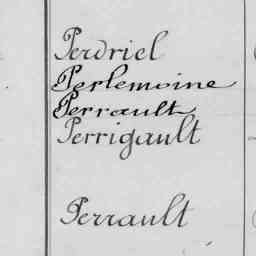 Perdriel
Perlemoine
Perrault
Perrigault
Perrault